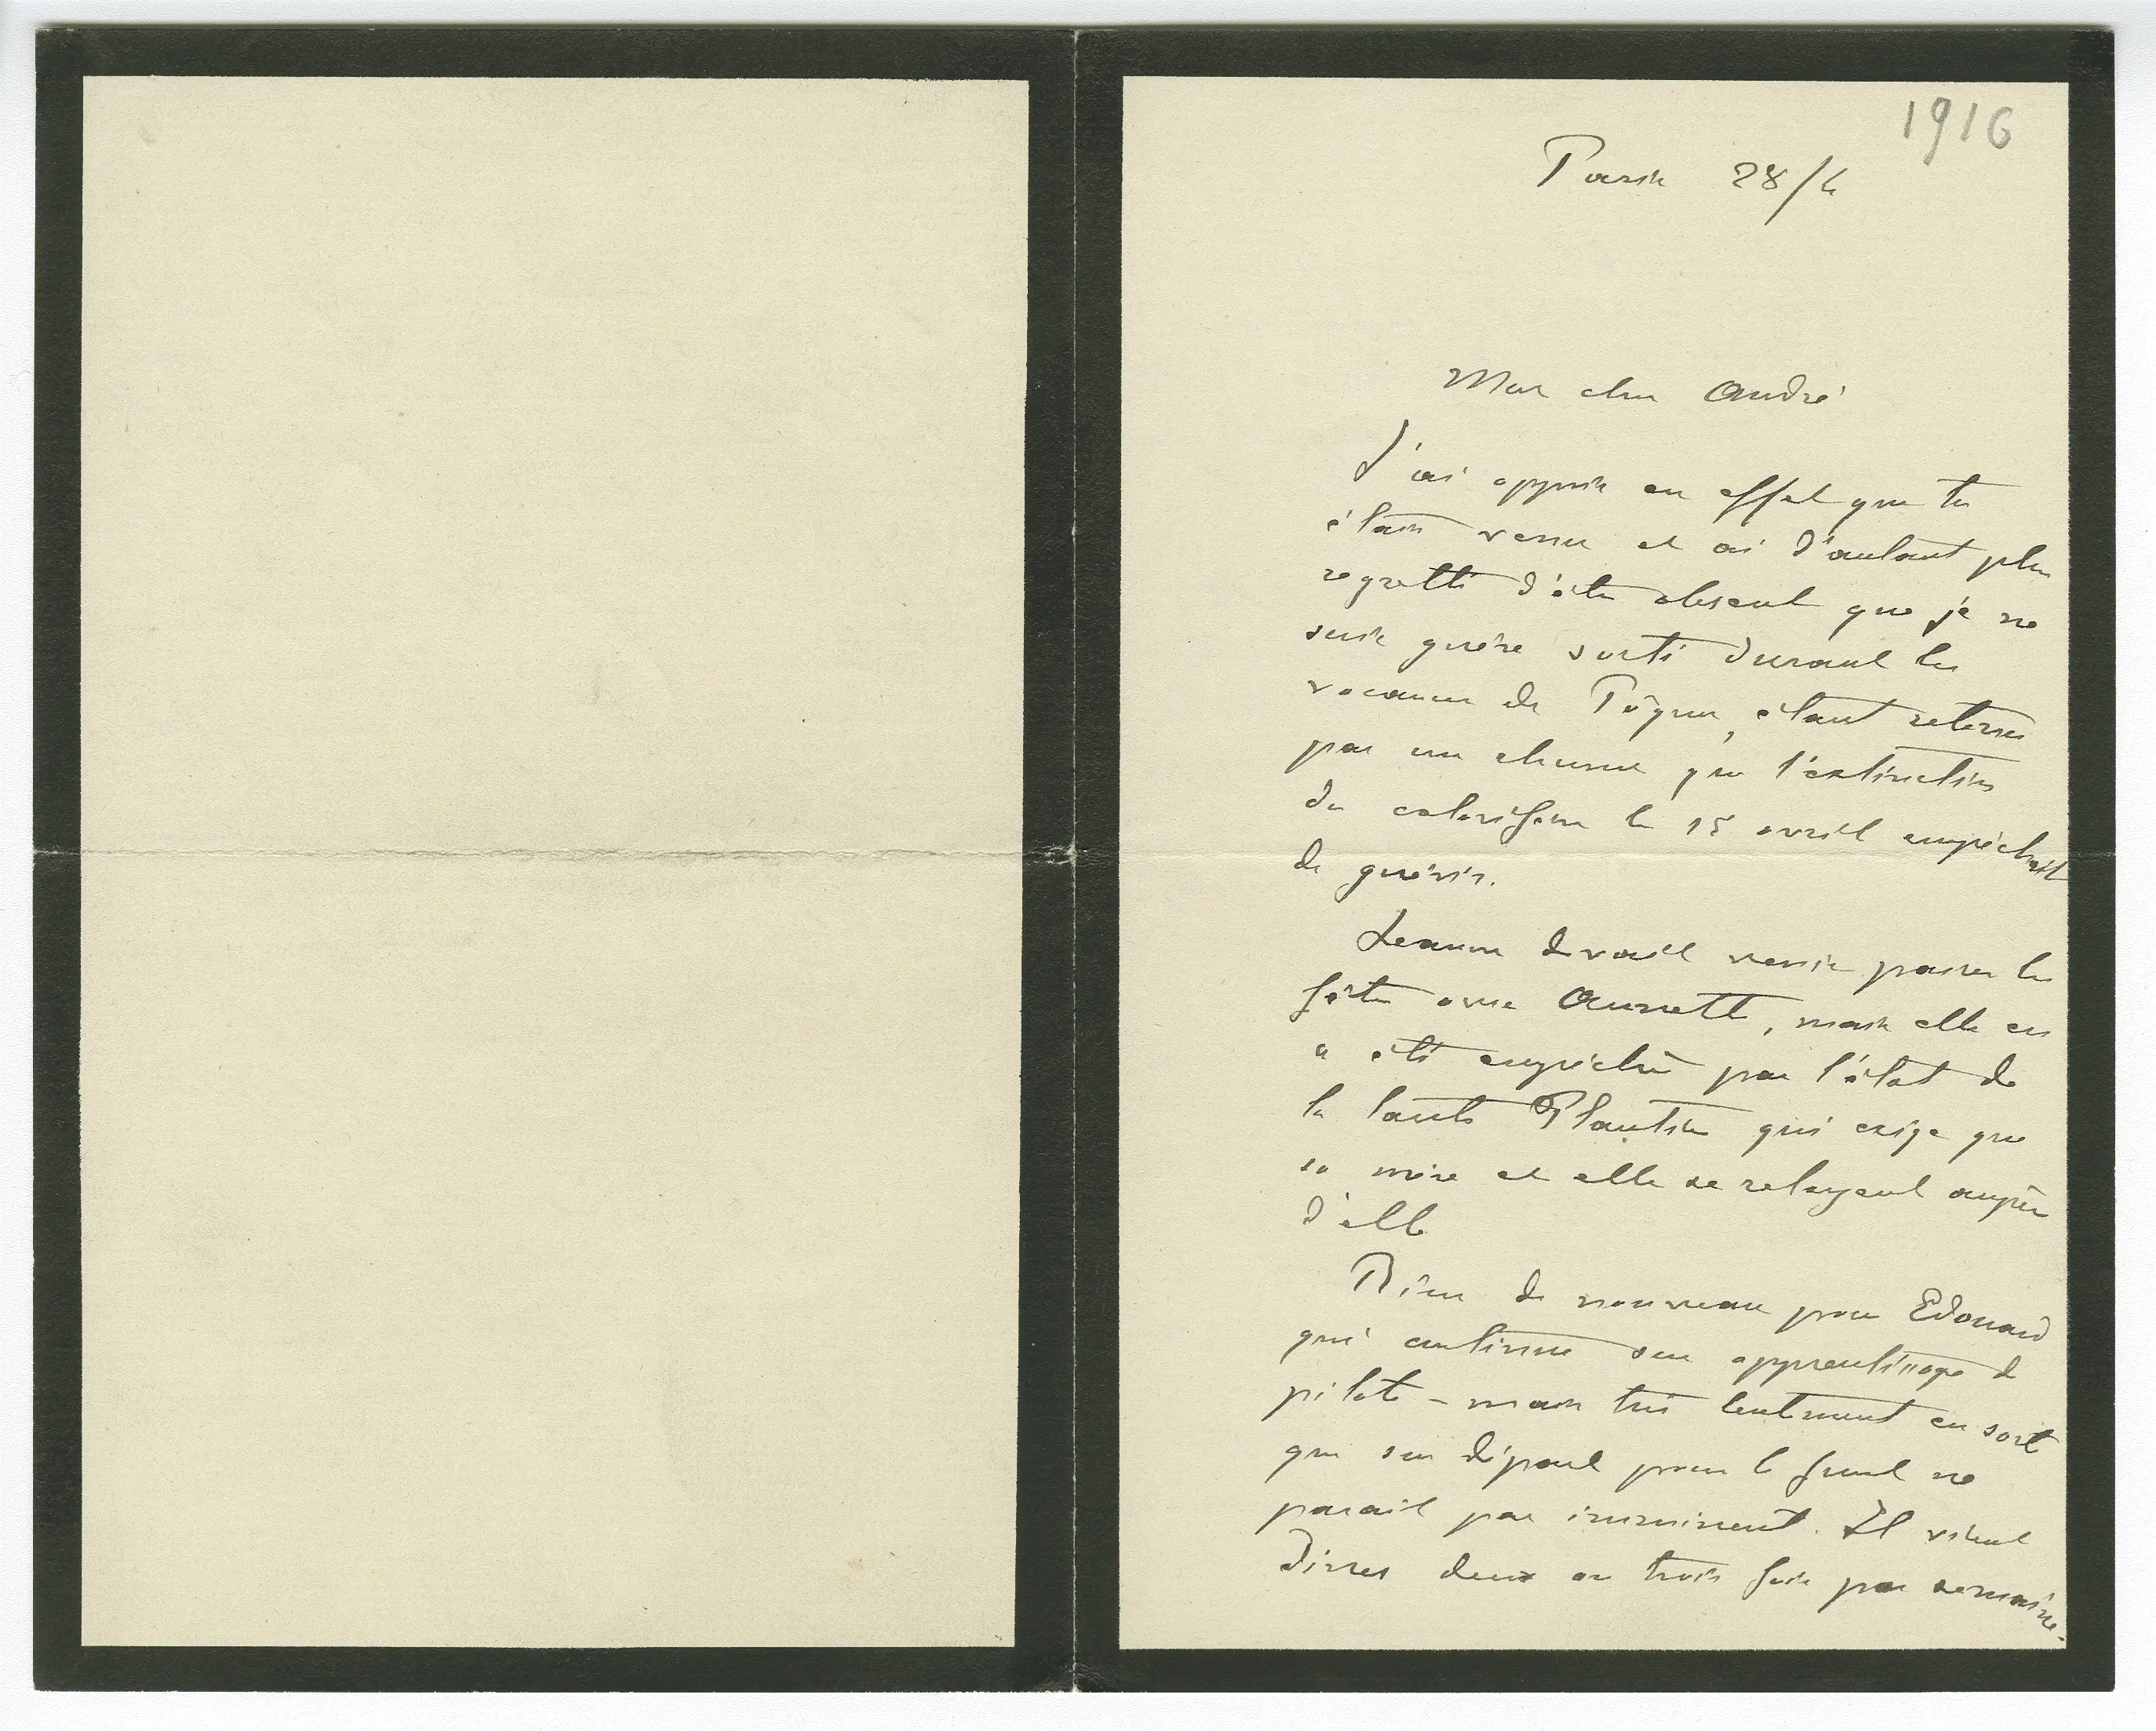 1916
Paris 28/4
Mon cher André
J'ai appris en effet que tu
étais venu et ai d'autant plus
regretté d'être absent que je ne
suis guère sorti durant les
vacances de Pâques, étant retenu
par un rhume que l'extinction
du calorifère le 15 avril empêchait
de guérir.
Jeanne devait venir passer les
fêtes avec Annette, mais elle en
a été empêchée par l'état de
la tante Plantin qui exige que
sa mère et elle se relayent auprès
d'elle
Rien de nouveau pour Edouard
qui continue son apprentissage de
pilote - mais très lentement en sorte
que son départ pour le front ne
parait pas imminent. Il vient
dîner deux ou trois fois par semaine.